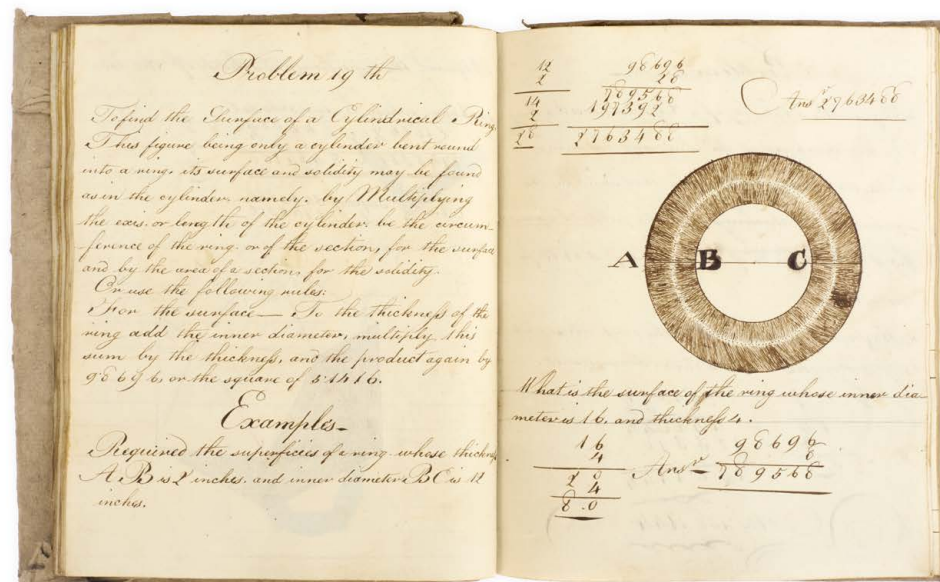 Problem 19 th
To find the Surface of a Cylindrical Ring.
This figure being only a cylinder bent round
into a ring, its surface and solidity may be found
as in the cylinder, namely. by Multiplying
the exis. or length of the cylinder. be the circum-
ference of the ring. or of the section, for the surface
and by the area of a section, for the solidity.
Or use the following rules:
For the surface — To the thickness of the
ring add the inner diameter, multiply this
sum by the thickness, and the product again by
98696, or the square of 3.1416.
Examples-
Required the superficies of a ring whose thickness
A B is 2 inches. and inner diameter B C is 12
inches.
12 98696
2 28
14 789568
2 197392
28 2763488
Ansr 2763488
A B C
What is the surface of the ring whose inner dia-
meter is 16. and thickness 4.
16 98696
4 Answr 8
20 789568
4
8.0